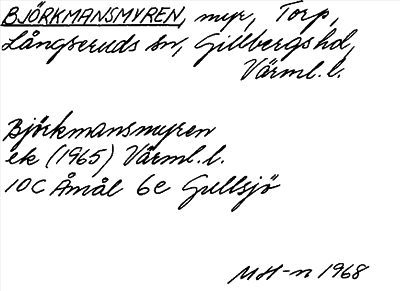 BJÖRKMANSMYREN, myr, Torp,
Långseruds sn, Gillbergs hd,
Värml. l.
Björkmansmyren
ek (1965) Värml. l.
10C Åmål 6e Gullsjö
MH-n 1968